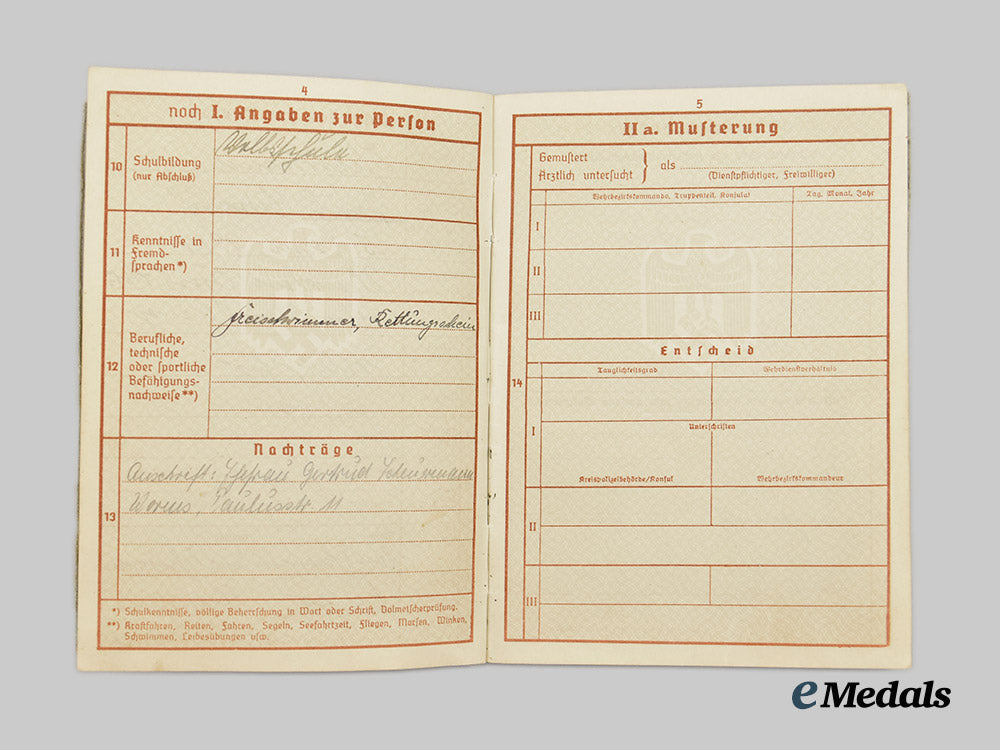 4
noch I. Angaben zur Person
10
Schulbildung
(nur Abschluß)
Volksschule
11
Kenntnisse in
Fremd-
sprachen*)
12
Berufliche,
technische
oder sportliche
Befähigungs-
nachweise**)
Freischwimmer, Rettungsschein
Nachträge
13
Anschrift: Ehefrau Gertrud
Worms, Paulusstr. 11
*) Schulkenntnisse, völlige Beherrschung in Wort oder Schrift, Dolmetscherprüfung.
**) Kraftfahren, Reiten, Fahren, Segeln, Seefahrtzeit, Fliegen, Morsen, Winken,
Schwimmen, Leibesübungen usw.
5
IIa. Musterung
Gemustert
Ärztlich untersucht } als
(Dienstpflichtiger, Freiwilliger)
Wehrbezirkskommando, Truppenteil, Konsulat
Tag, Monat, Jahr
I
II
III
Entscheid
14
Tauglichkeitsgrad
Wehrdienstverhältnis
I
Unterschriften
Kreispolizeibehörde/Konsul
Wehrbezirkskommandeur
II
III
eMedals